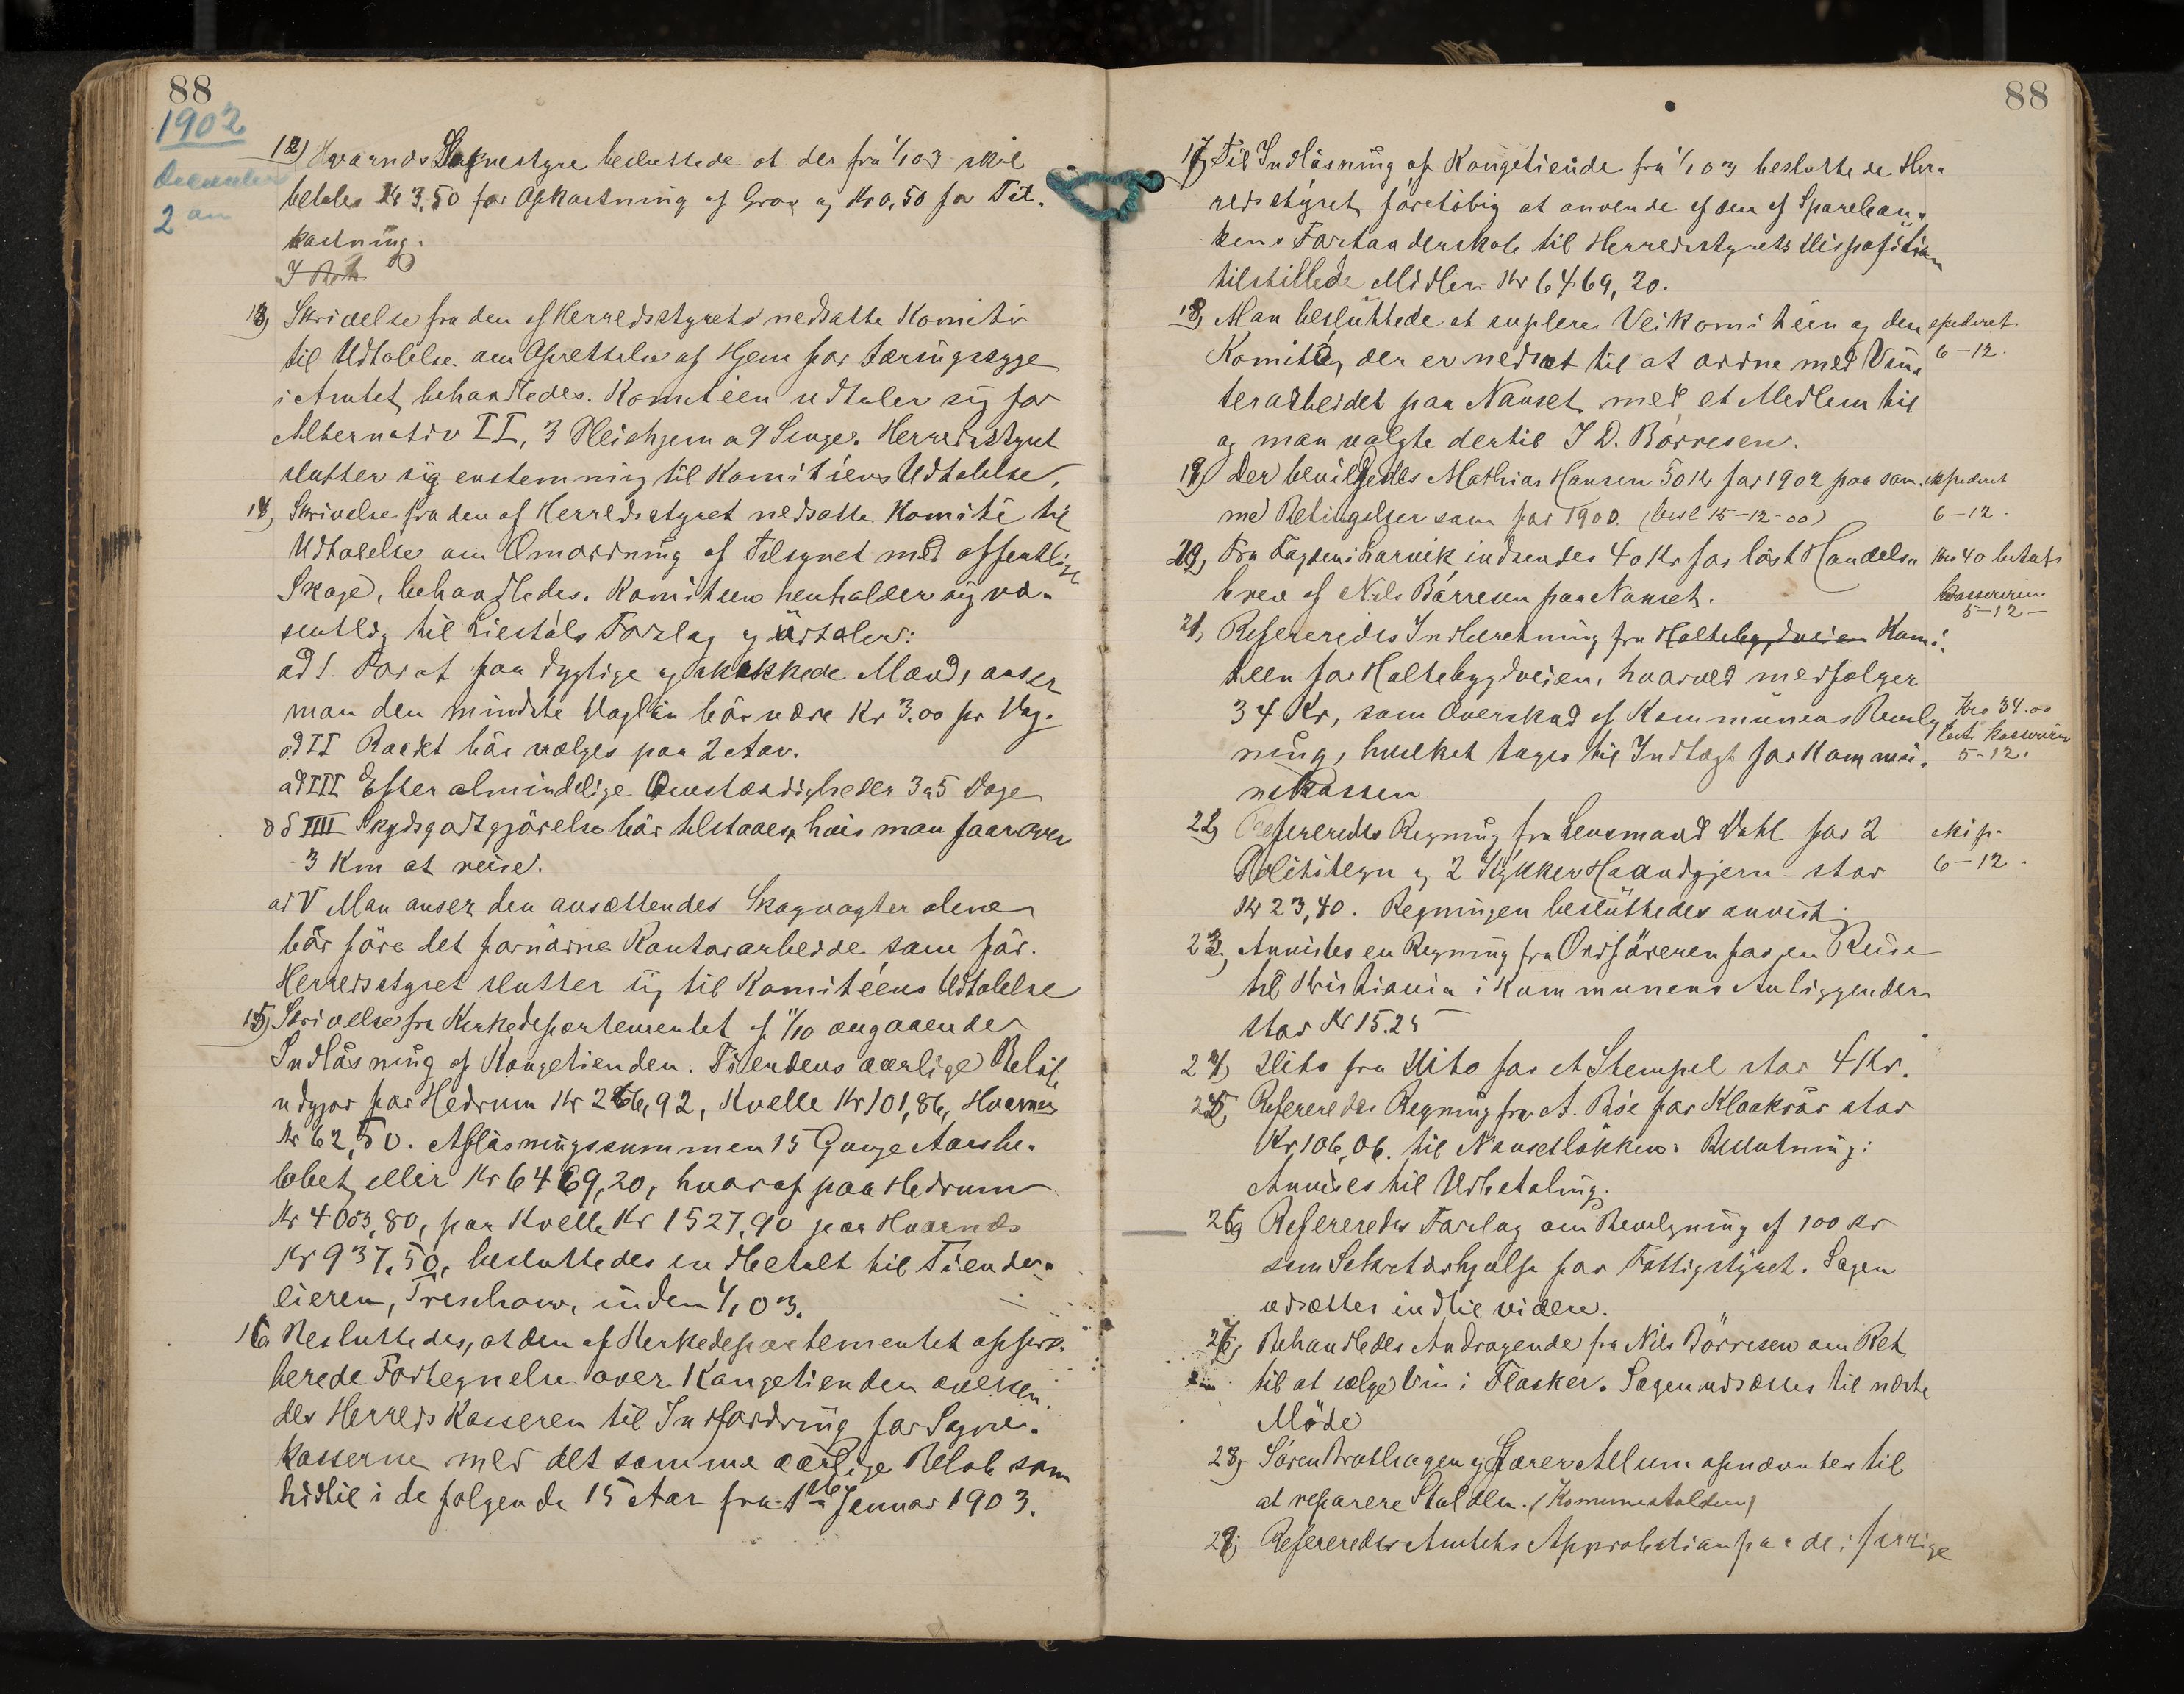 88
1902
December
2an
12) Hvarnæs Sognestyre besluttede at der fra 1/1 03 skal
betales Kr 3,50 for Opkastning af Grav og Kr 0,50 for Til-
kastning.
13) Skrivelse fra den af Herredsstyrets nedsatte Komite
til Udtalelse om Oprettelse af Hjem for tæringssyge
i Amtet, behandledes. Komiteen udtaler sig for
Alternativ II, 3 Pleiehjem a 9 Senger. Herredsstyret
slutter sig enstemmig til Komiteens Udtalelse.
14) Skrivelse fra den af Herredsstyret nedsatte Komite til
Udtalelse om Omordning af Tilsynet med offentlige
Skoge, behandledes. Komiteen henholder sig væ-
sentlig til Liestøls Forslag og udtaler:
ad I. For at faa dygtige og skikkede Mænd, anser
man den mindste Dagløn bør være Kr 3.00 pr Dag.
ad II Raadet bør vælges paa 2 Aar.
ad III Efter almindelige Omstændigheder 3 a 5 Dage
ad IIII Skydsgodtgjørelse bør tilstaaes, hvis man faar over
3 Km at reise.
ad V Man anser den ansættendes Skogvogter alene
bør føre det fornødne Kontorarbeide som før.
Herredsstyret slutter sig til Komitéens Udtalelse
15) Skrivelse fra Kirkedepartementet af 11/10 angaaende
Indløsning af Kongetienden. Tiendens aarlige Beløb
udgjør for Hedrum Kr 266,92, Kvelle Kr 101,86, Hvarnes
Kr 62,50. Afløsningssummen 15 Gange Aarsbe-
løbet eller Kr 6469,20, hvoraf paa Hedrum
Kr 4003,80, paa Kvelle Kr 1527,90 paa Hvarnæs
Kr 937.50, besluttedes indbetalt til Tiende-
eieren, Treschow, inden 1/1 03.
16 Besluttedes, at den af Kirkedepartementet appro-
berede Fortegnelse over Kongetienden oversen-
des Herredskasseren til Indfordring for Sogne-
kasserne med det samme aarlige Beløb som
hidtil i de følgende 15 Aar fra 1ste Januar 1903.
88
17) Til Indløsning af Kongetiende fra 1/1 03 besluttede Her-
redsstyret foreløbig at anvende af den af Spareban-
kens Forstanderskab til Herredsstyrets Disposition
tilstillede Midler Kr 6469,20.
18) Man besluttede at suplere Veikomiteen og den
Komite, der er nedsat til at ordne med Vin-
terarbeidet paa Nanset, med et Medlem til
og man valgte dertil J D. Børresen.
expederet
6-12.
19) Der bevilgedes Mathias Hansen 50 Kr for 1902 paa sam-
me Betingelser som for 1900. (besl 15-12-00)
expederet
6-12.
20) Fra Fogden i Larvik indsendes 40 Kr for løst Handels-
brev af Nils Børresen paa Nanset.
Kr 40 betalt
kassereren
5-12-
21) Refereredes Indberetning fra Holtebygdveien Komi-
teen for Holtebygdveien, hvorved medfølger
34 Kr, som Overskud af Kommunens Bevilg-
ning, hvilket tages til Indtægt for Kommu-
nekassen
Kr 34.00
bet. kassereren
5-12.
22) Refereredes Regning fra Lensmand Dahl for 2
Politistegn og 2 Stykker Haandjern - stor
Kr 23,40. Regningen besluttedes anvist.
6-12.
23, Anvistes en Regning fra Ordføreren for en Reise
til Kristiania i Kommunens Anliggender
stor Kr 15.25
24) Dito fra Dito for et Stempel stor 4 Kr.
25, Refereredes Regning fra A. Bøe for Kloakrør stor
Kr 106,06. til Nansetløkken. Beslutning:
Anvises til Udbetaling.
26, Refereredes Forslag om Bevilgning af 100 Kr
som Sekretærhjælp for Fattigstyret. Sagen
udsættes indtil videre.
27, Behandledes Andragende fra Nils Børresen om Ret
til at sælge Vin i Flasker. Sagen udsættes til næste
Møde
28, Søren Brathagen og Lærer Allum opnævntes til
at reparere Stalden. (Kommunestalden)
29, Refereredes Amtets Approbation paa de i forrige